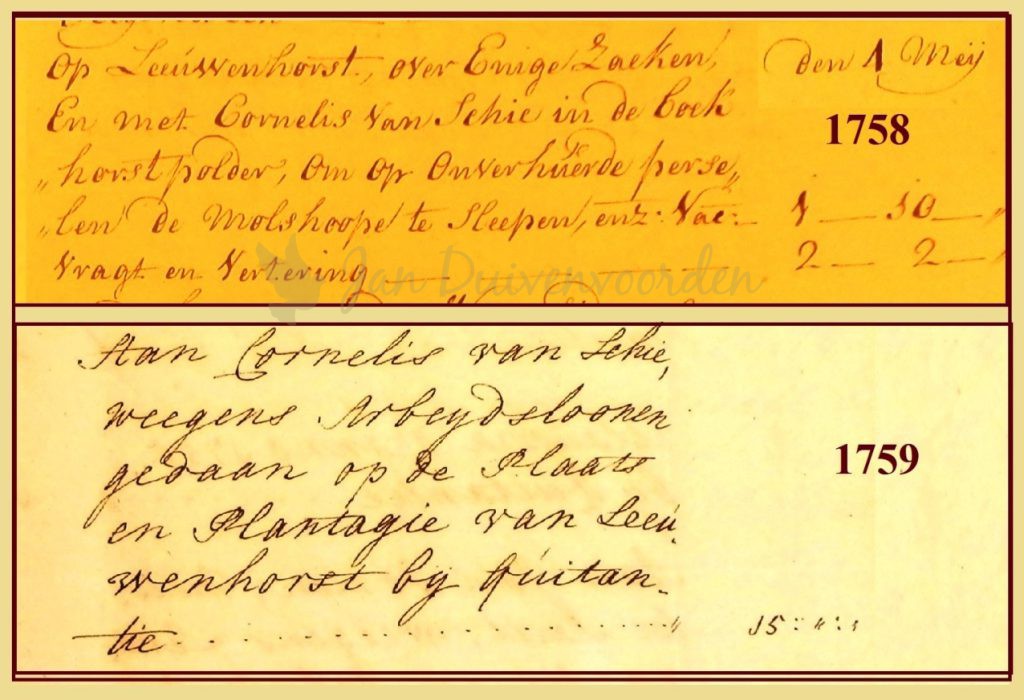 Op Leeuwenhorst, over Enige Zaeken, den 1 Meij
En met Cornelis van Schie in de Cock
1758
„horstpolder, om op Onverhuerde perse„
„len de Molshoope te Sleepen, enz: Vac:— 1 — 10 — „
Vragt en Vertering — — — — 2 — 2 — „
Jan Duivenvoorden
Aan Cornelis van Schie,
weegens Arbeydsloonen
gedaan op de Plaats
1759
en Plantagie van Leeu
wenhorst by Quitan-
tie . . . . . . . . . . . . . . . . . . „ 15 : „ : „